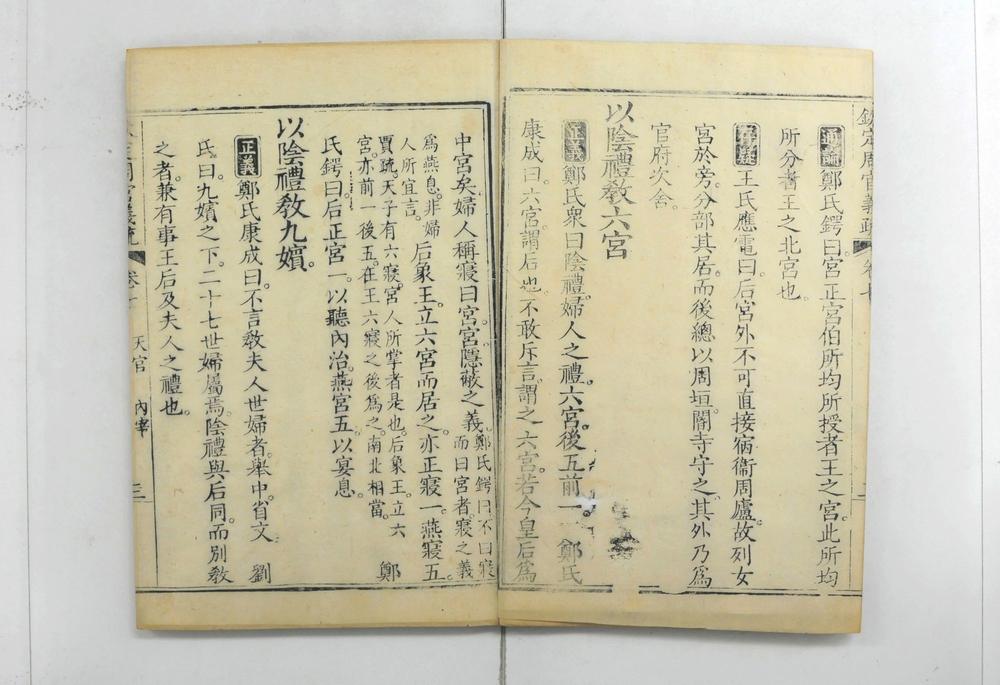 欽定周官義疏 卷七
通論鄭氏鍔曰宮正宮伯所均所授者王之宮此所均
所分者王之北宮也。
存疑王氏應電曰后宮外不可直接宿衞周廬故列女
宮於旁。分部其居。而後總以周垣。閽寺守之。其外乃為
官府次舍。
以陰禮敎六宮
正義鄭氏眾曰陰禮婦人之禮。六宮。後五前一 鄭氏
康成曰。六宮。謂后也。不敢斥言。謂之六宮。若今皇后為
中宮矣。婦人稱寢曰宮。宮隱蔽之義。鄭氏鍔曰不曰寢
而曰宮者。寢之義
為燕息。非婦
人所宜言。 后象王。立六宮而居之。亦正寢一。燕寢五。
賈疏。天子有六寢。宮人所掌者是也。后象王立六
宮。亦前一後五。在王六寢之後為之。南北相當。 鄭
氏鍔曰。后正宮一。以聽內治。燕宮五。以宴息。
以陰禮敎九嬪。
正義鄭氏康成曰。不言敎夫人世婦者。舉中。省文 劉
氏曰。九嬪之下。二十七世婦屬焉。陰禮與后同。而別敎
之者。兼有事王后及夫人之禮也。
周官義疏 卷七 天官 內宰 三